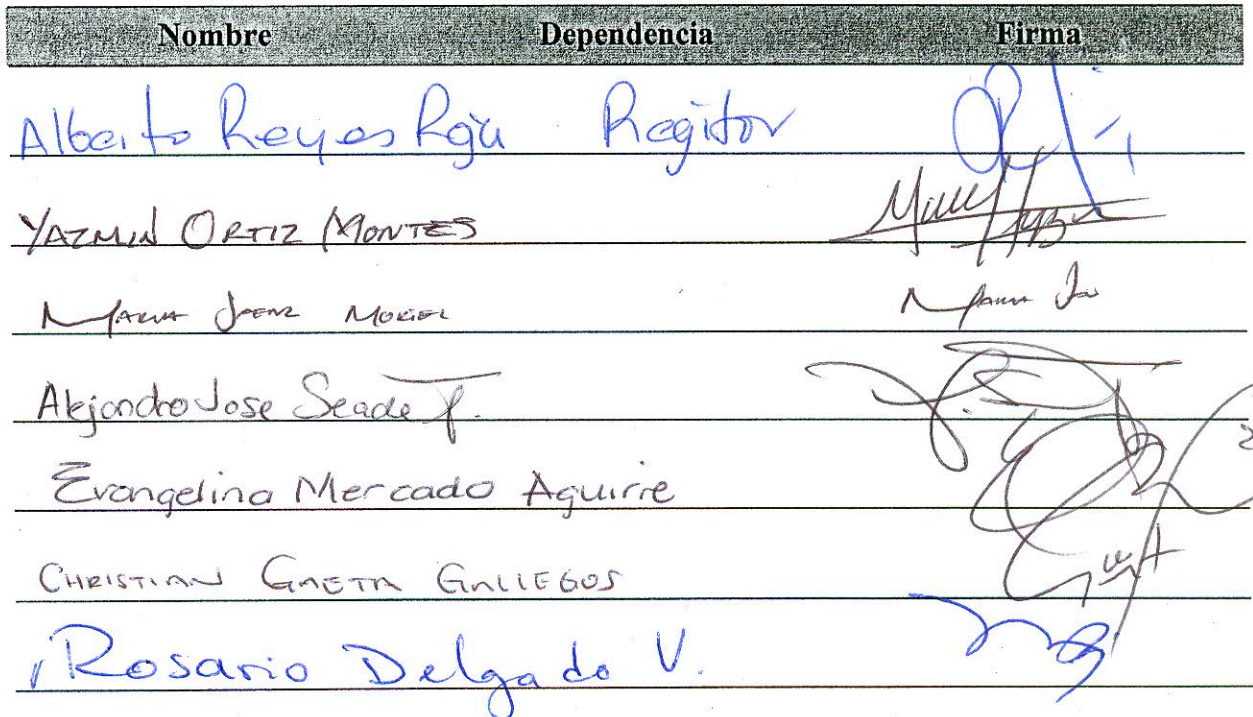 Nombre Dependencia Firma
Alberto Reyes Regitor
YAZMIN ORTIZ MONTES
MARIA
Alejandro Jose Seade T.
Evangelina Mercado Aguirre
CHRISTIAN GAETA GALLEGOS
Rosario Delgado V.